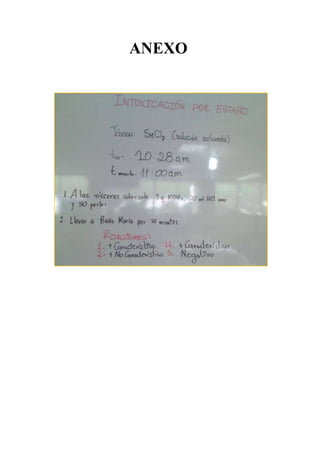 ANEXO
INTOXICACIÓN POR ESTAÑO
Tóxico SnCl2 (solución saturada)
10:28 am
t muerte: 11:00am
1. A las vísceras colocarle
y 50 perlas
2. Llevar a Baño María por 30 minutos
Reacciones:
1. + Característico 4. + Característico
2. + No Característico 5. Negativo